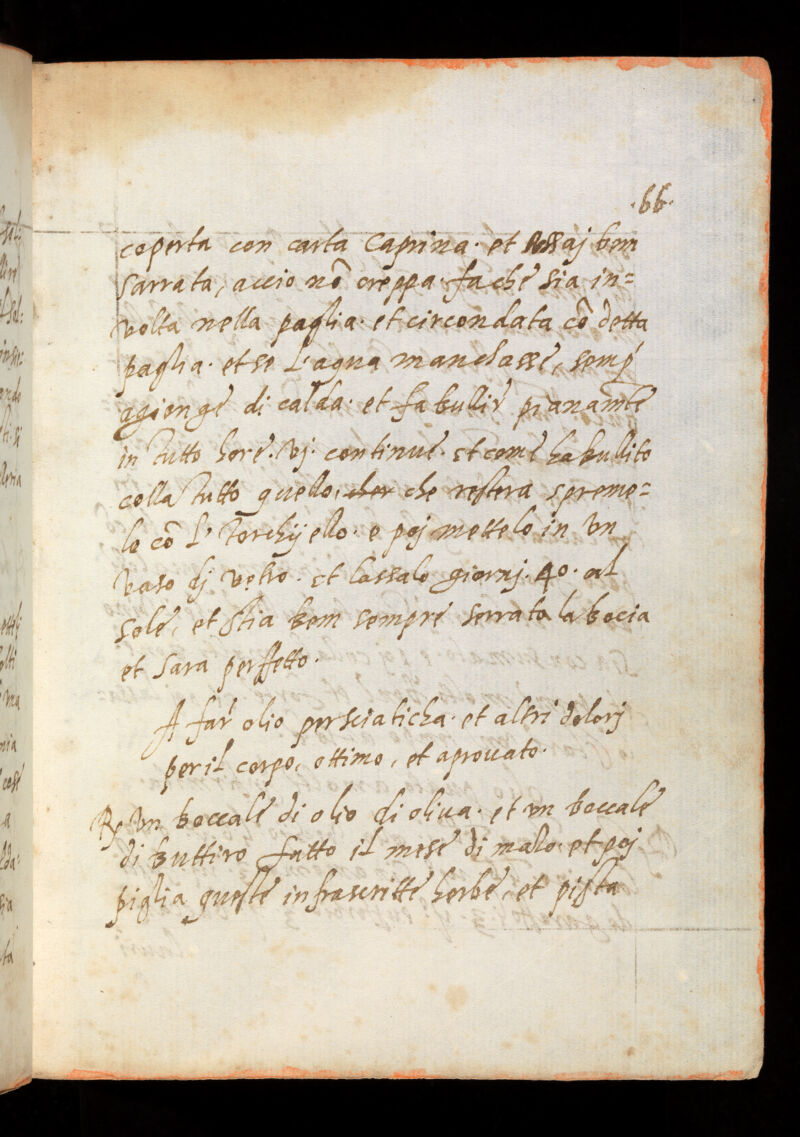 .66.
coperta con carta Caprina. et assaj ben
sarrata, accio nõ creppa. fa che sia in=
volta nella paglia. et circondata cõ detta
paglia. et se l'aqua manchasse, semp
agionge di calda. et fa bullir pianamte
in tutto hore. vj. continue. et come ha bullito
colla tutto quello, cher che restera spreme=
lo cõ l'torchijello. e poj mettelo in un
vaso dj vetro. et lassalo giornj. 40. al
sole, et stia ben sempre serrato la bocia
et sara perffetto.
A far olio per sciaticha. et altri dolorj
per il corpo, ottimo, et aprouato.
℞ Un boccale di olio di oliua. et un boccale
di buttiro fatto il mese di maio. et poj
piglia queste infrascritte herbe, et pista